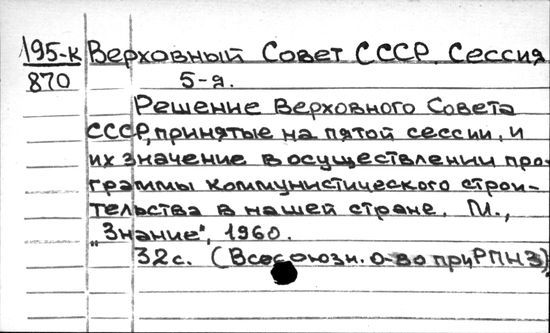 195-к Верховный Совет СССР. Сессия
870 5-я.
Решение Верховного Совета
СССР, принятые на пятой сессии, и
их значение в осуществлении про-
граммы коммунистического строи-
тельства в нашей стране. М.,
„Знание", 1960.
32 с. (Всесоюзн. о-во при РПНЗ)